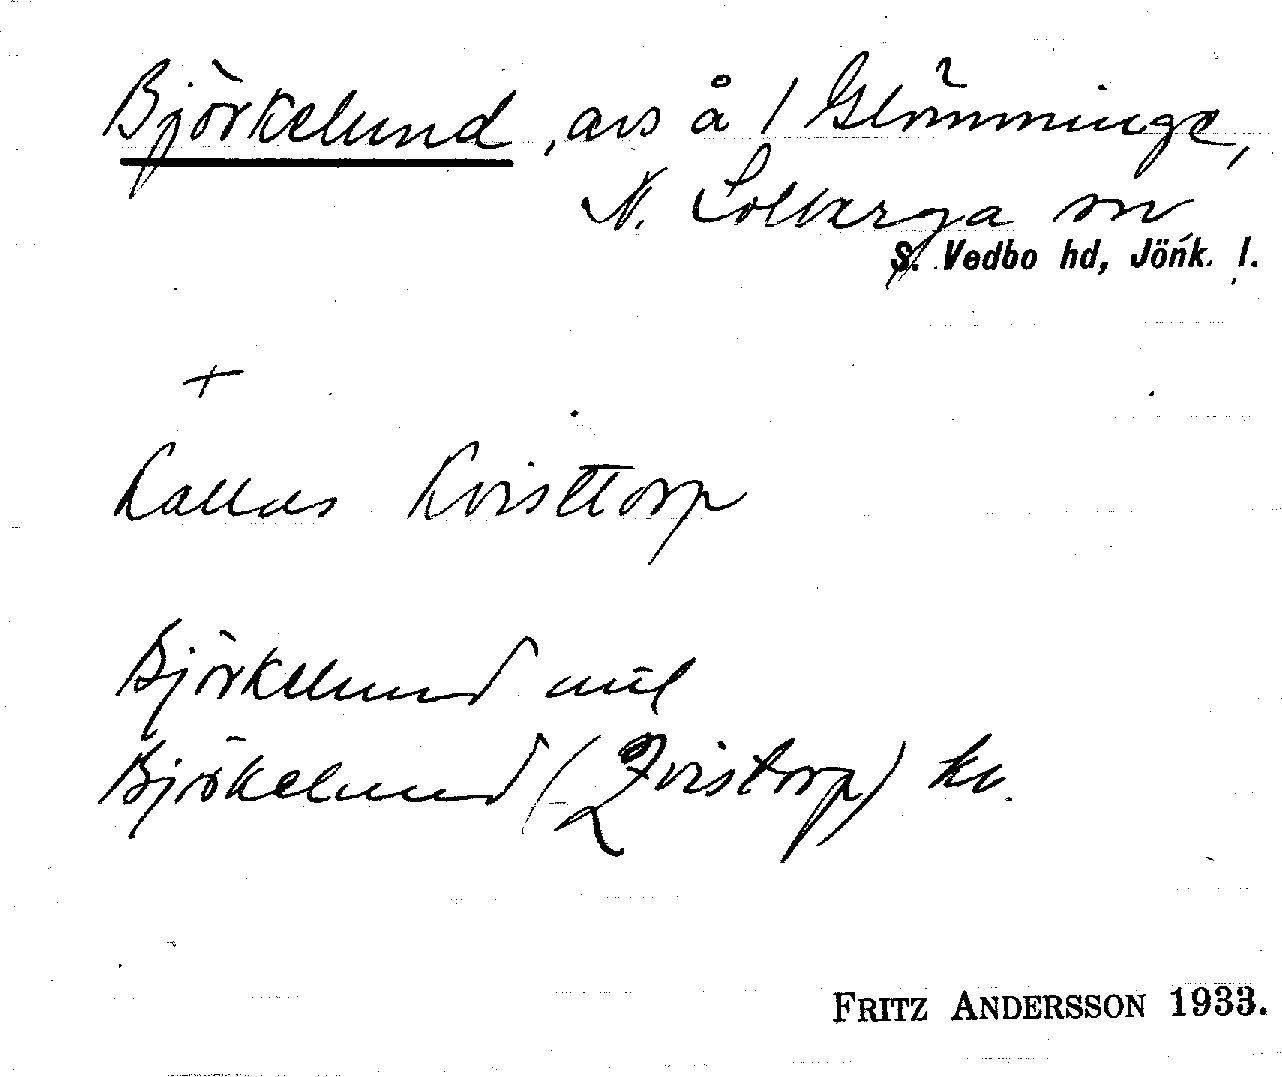 Björkelund, avs å 1 Glömminge,
N. Solberga sn
S. Vedbo hd, Jönk. l.
+
Kallas Kvisttorp
Björkelund
Björkelund (Qvistorp) kv.
FRITZ ANDERSSON 1933.